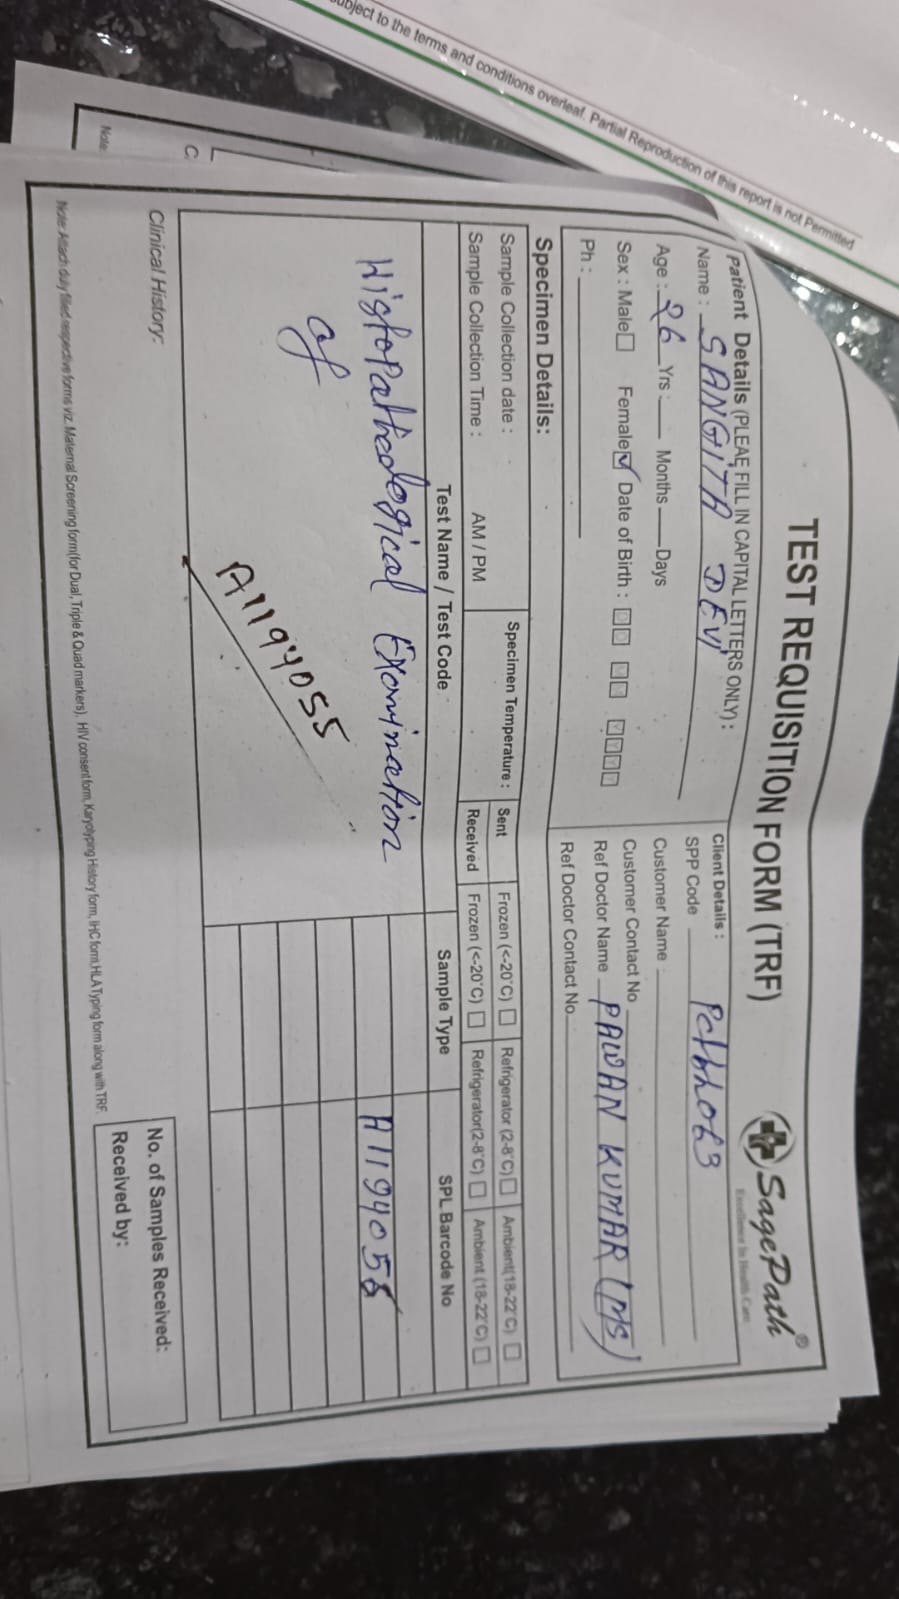 ubject to the terms and conditions overleaf. Partial Reproduction of this report is not Permitted
TEST REQUISITION FORM (TRF)
SagePath®
Excellence In Health Care
Patient Details (PLEAE FILL IN CAPITAL LETTERS ONLY) :
Name : SANGITA DEVI
Age : 26 Yrs : Months Days
Sex : Male Female Date of Birth :
Ph :
Client Details :
SPP Code
Customer Name
Customer Contact No
Ref Doctor Name PAWAN KUMAR (MS)
Ref Doctor Contact No
Specimen Details:
Sample Collection date :
Sample Collection Time : AM / PM
Specimen Temperature :
Sent Frozen (<-20°C) Refrigerator (2-8°C) Ambient(18-22°C)
Received Frozen (<-20°C) Refrigerator(2-8°C) Ambient (18-22°C)
Test Name / Test Code Sample Type SPL Barcode No
Histopathological Examination
of
A1194055
A1194055
Clinical History:
No. of Samples Received:
Received by:
Note: Attach duly filled respective forms viz. Maternal Screening form(for Dual, Triple & Quad markers), HIV consent form, Karyotyping History form, IHC form, HLA Typing form along with TRF.
C
Note: